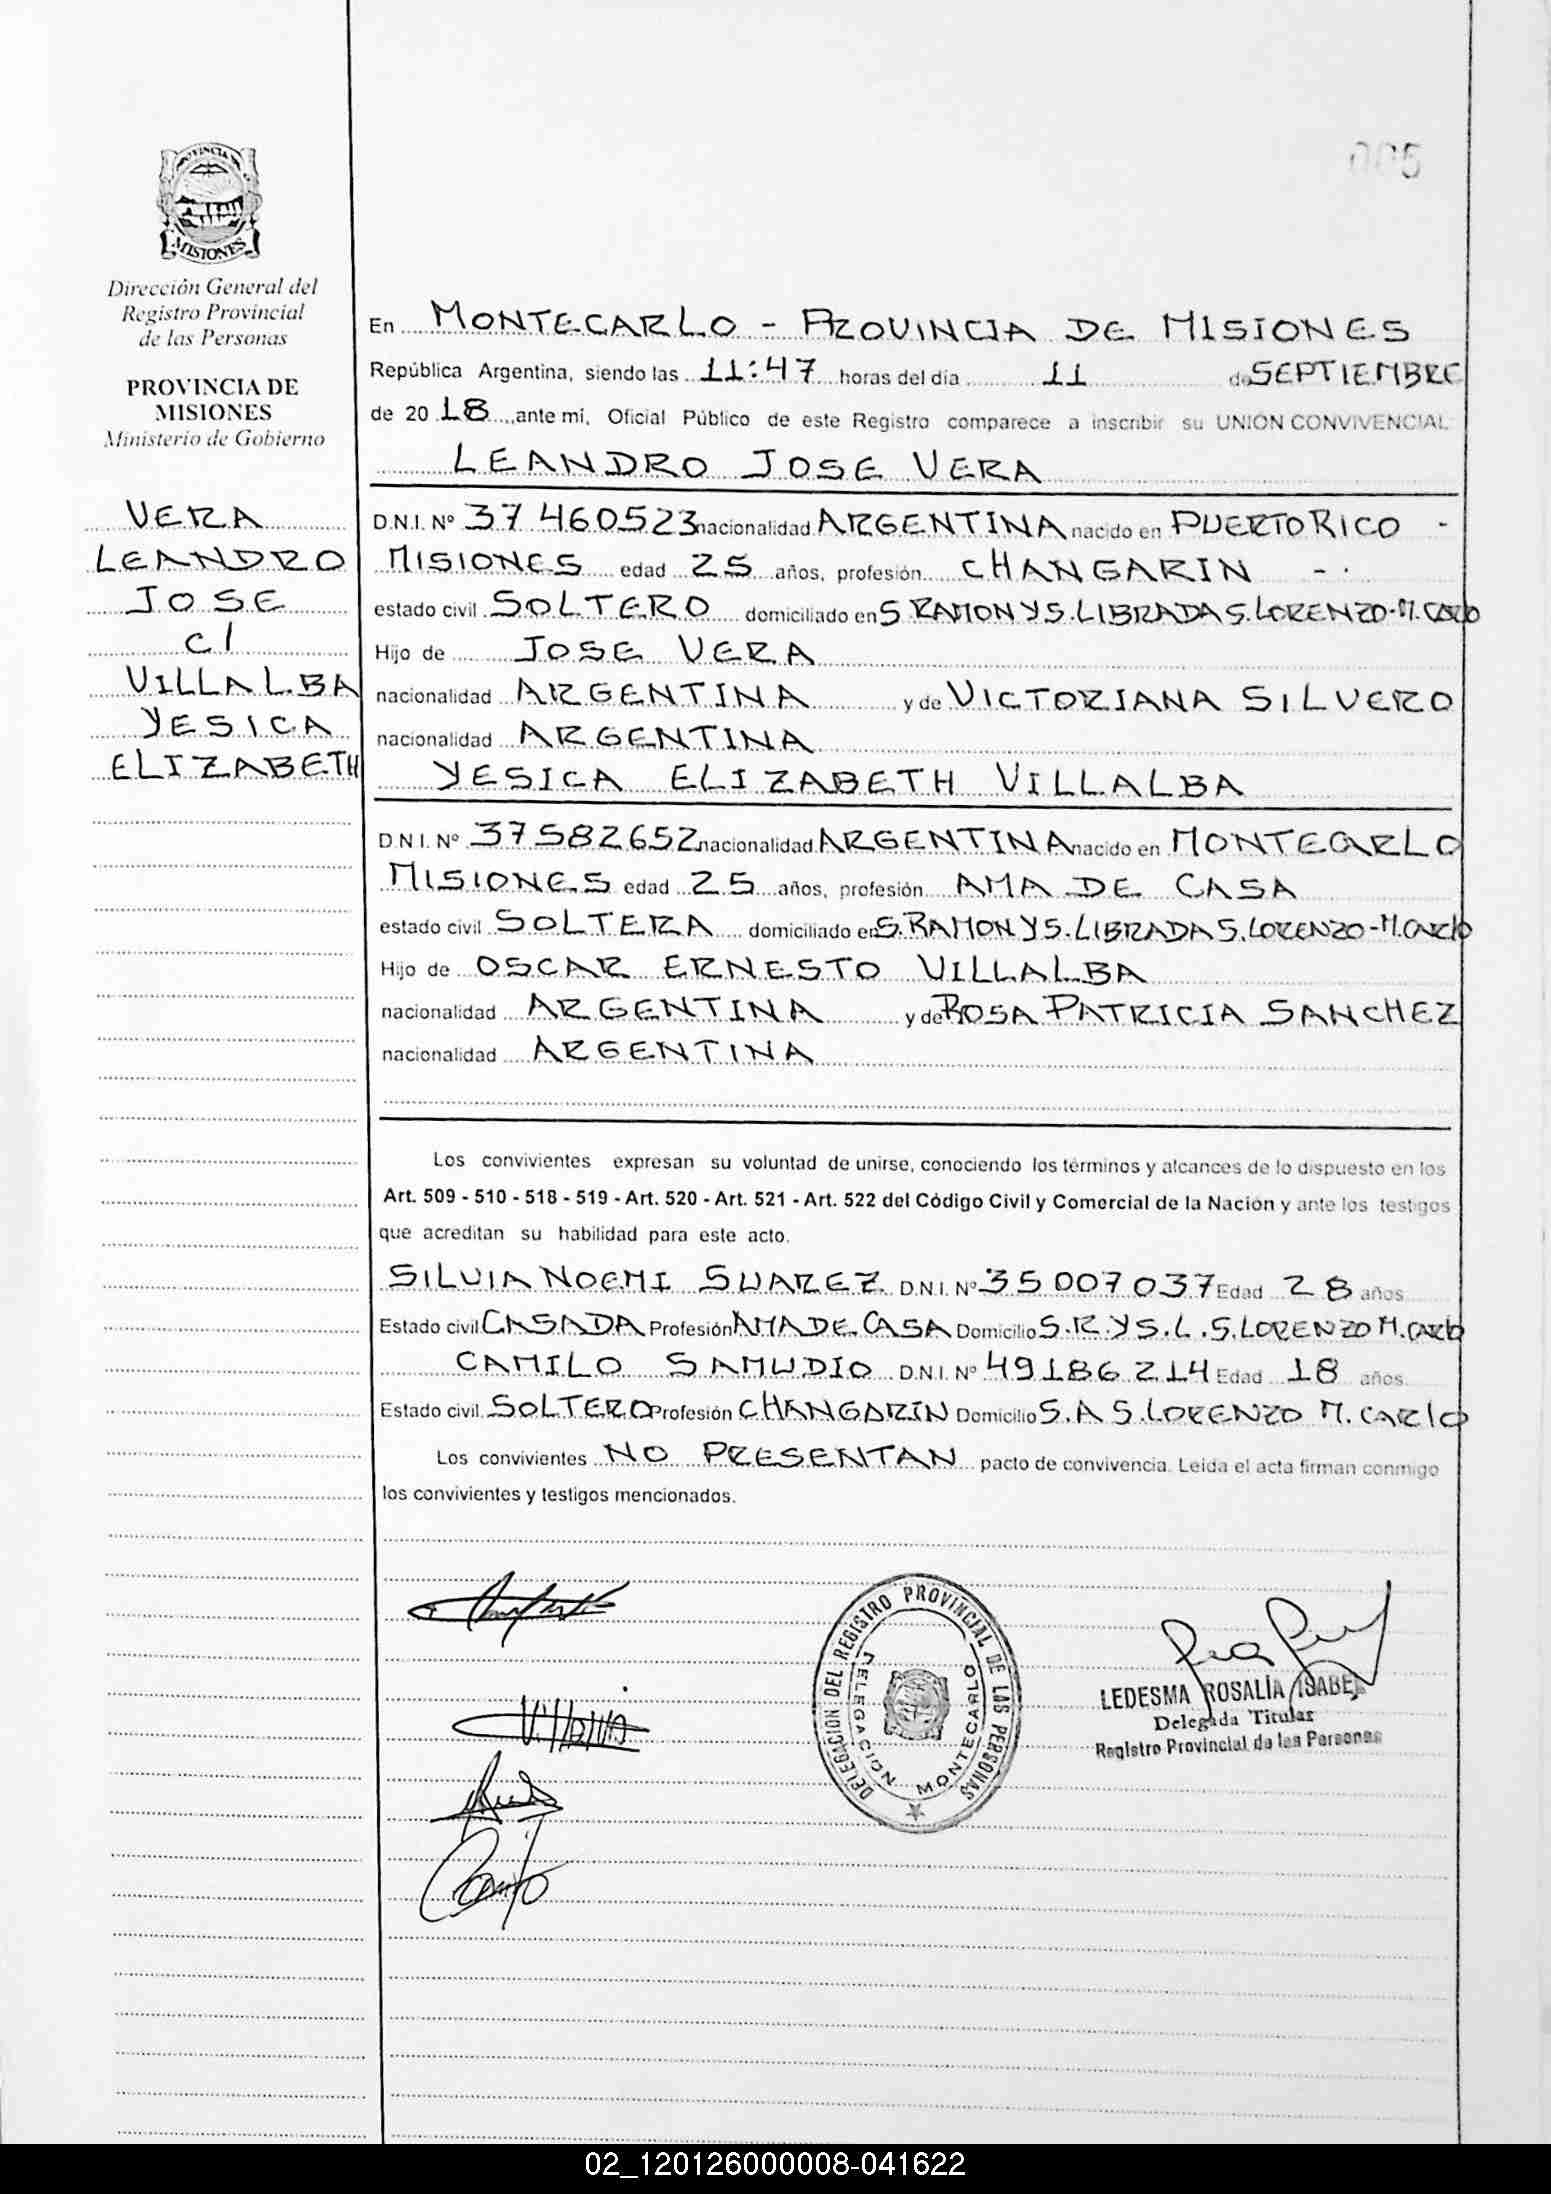 005
PROVINCIA
MISIONES
Dirección General del
Registro Provincial
de las Personas
PROVINCIA DE
MISIONES
Ministerio de Gobierno
VERA
LEANDRO
JOSE
C/
VILLALBA
YESICA
ELIZABETH
En MONTECARLO - PROVINCIA DE MISIONES
República Argentina, siendo las 11:47 horas del día 11 de SEPTIEMBRE
de 20 18 ,ante mí, Oficial Público de este Registro comparece a inscribir su UNION CONVIVENCIAL
LEANDRO JOSE VERA
D.N.I. Nº 37 460523 nacionalidad ARGENTINA nacido en PUERTO RICO -
MISIONES edad 25 años, profesión CHANGARIN - .
estado civil SOLTERO domiciliado en S. RAMON Y S. LIBRADA S. LORENZO-M. CARLO
Hijo de JOSE VERA
nacionalidad ARGENTINA y de VICTORIANA SILVERO
nacionalidad ARGENTINA
YESICA ELIZABETH VILLALBA
D.N.I. Nº 37582652 nacionalidad ARGENTINA nacido en MONTECARLO
MISIONES edad 25 años, profesión AMA DE CASA
estado civil SOLTERA domiciliado en S. RAMON Y S. LIBRADA S. LORENZO-M. CARLO
Hijo de OSCAR ERNESTO VILLALBA
nacionalidad ARGENTINA y de ROSA PATRICIA SANCHEZ
nacionalidad ARGENTINA
Los convivientes expresan su voluntad de unirse, conociendo los términos y alcances de lo dispuesto en los
Art. 509 - 510 - 518 - 519 - Art. 520 - Art. 521 - Art. 522 del Código Civil y Comercial de la Nación y ante los testigos
que acreditan su habilidad para este acto.
SILVIA NOEMI SUAREZ D.N.I. Nº 35 007 037 Edad 28 años
Estado civil CASADA Profesión AMA DE CASA Domicilio S. R. Y S. L. S. LORENZO M. CARLO
CAMILO SAMUDIO D.N.I. Nº 49186214 Edad 18 años
Estado civil SOLTERO Profesión CHANGARIN Domicilio S. A S. LORENZO M. CARLO
Los convivientes NO PRESENTAN pacto de convivencia. Leída el acta firman conmigo
los convivientes y testigos mencionados.
DELEGACION DEL REGISTRO PROVINCIAL DE LAS PERSONAS
DELEGACION MONTECARLO
LEDESMA ROSALÍA ISABEL
Delegada Titular
Registro Provincial de las Personas
02_120126000008-041622